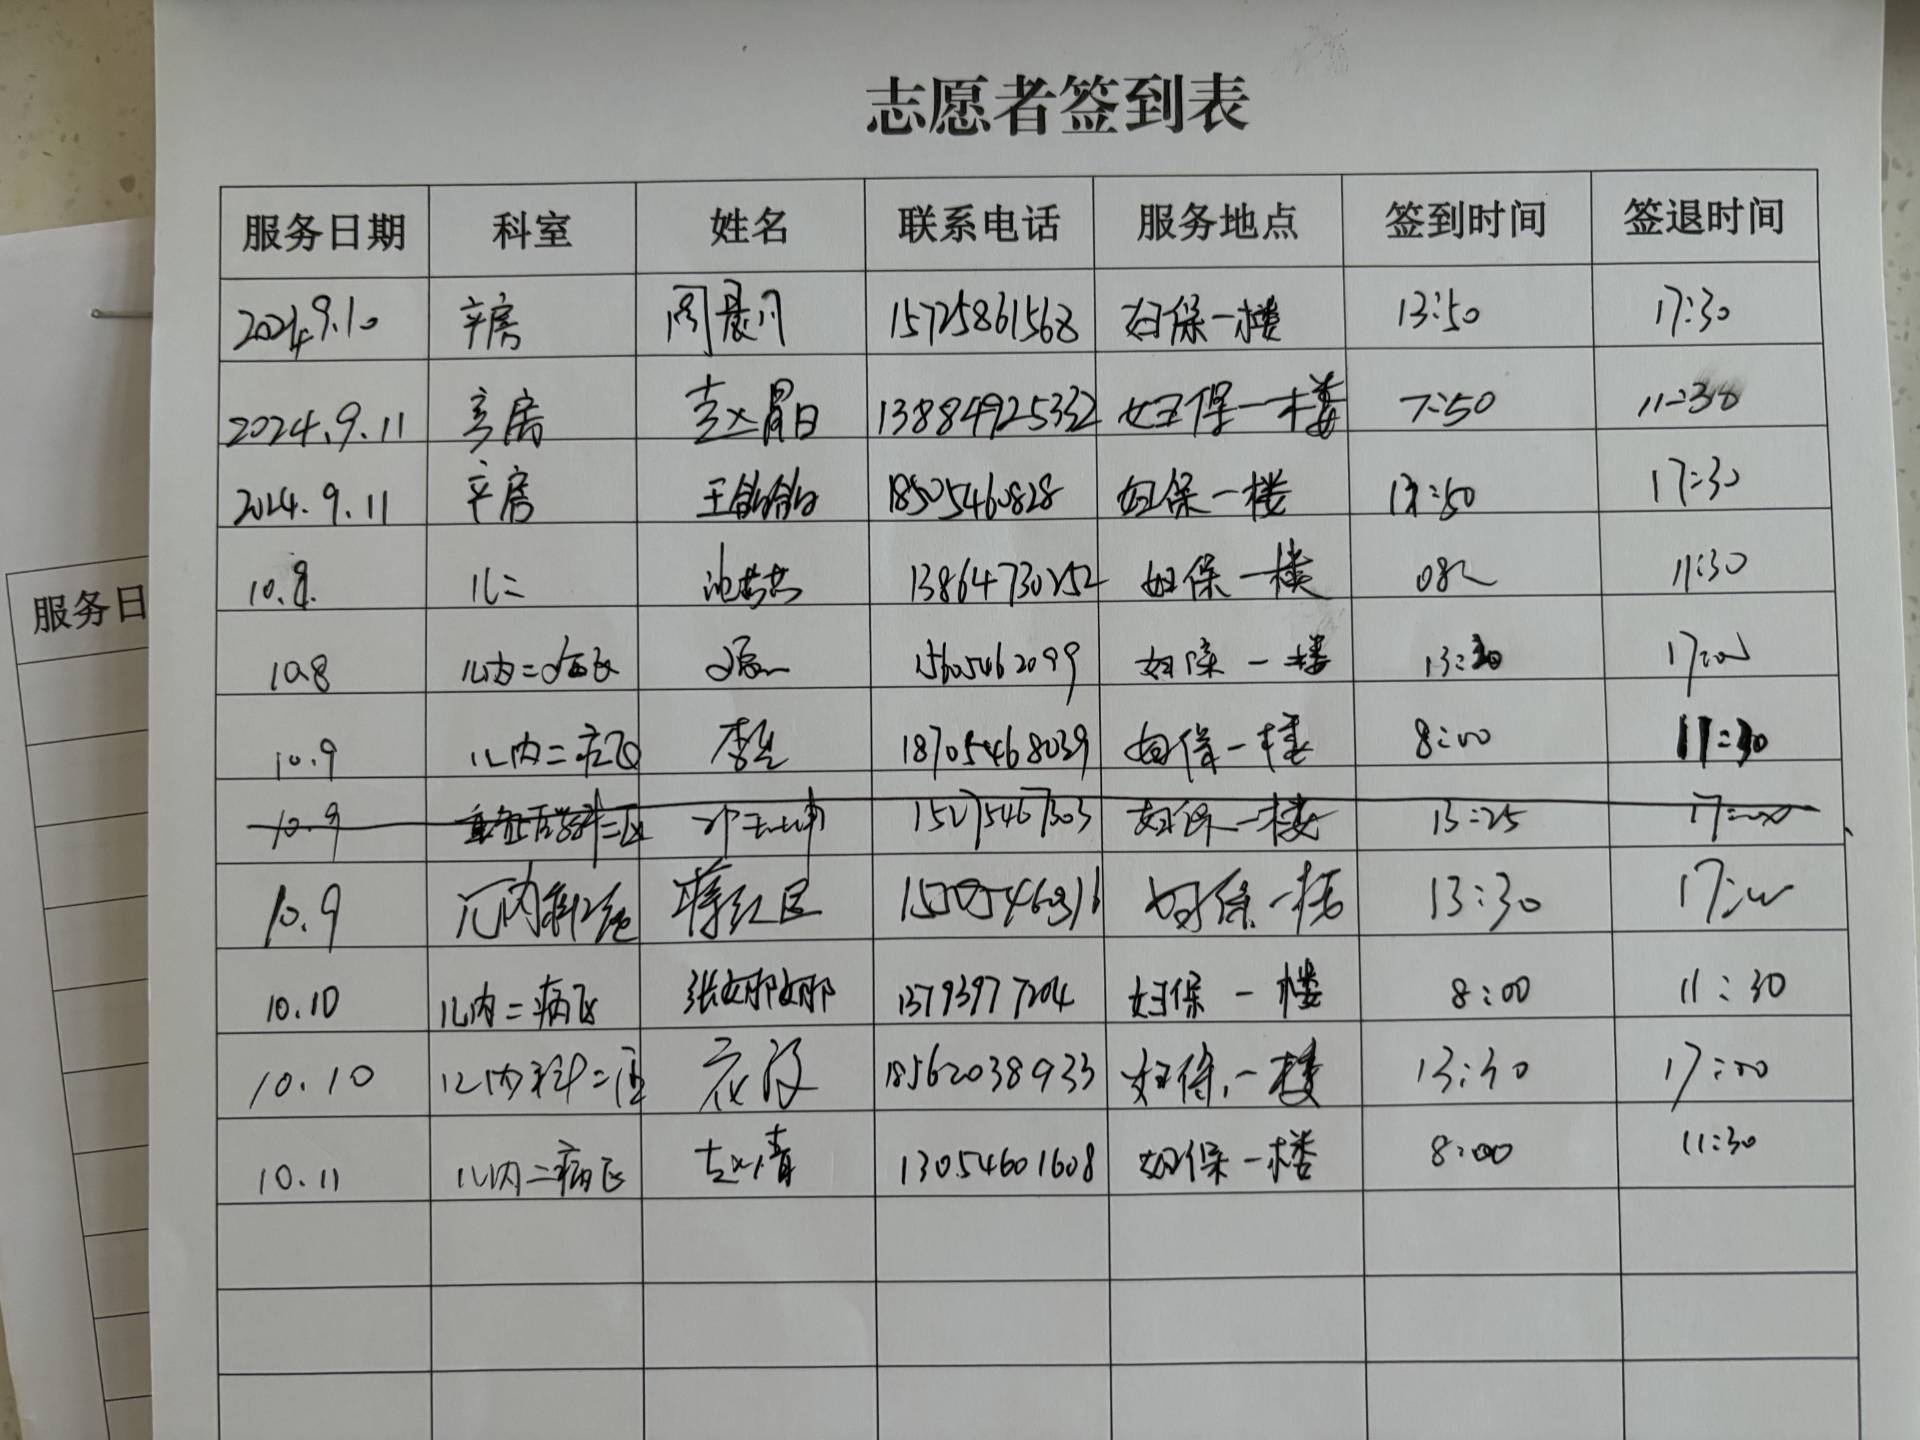 志愿者签到表
服务日期 科室 姓名 联系电话 服务地点 签到时间 签退时间
2024.9.10 产房 周晨川 15725861568 妇保一楼 13:50 17:30
2024.9.11 产房 赵 13884925332 妇保一楼 7:50 11:30
2024.9.11 产房 王 18505460828 妇保一楼 13:50 17:30
10.8. 儿二 池 13864730252 妇保一楼 11:30
10.8 儿内二病区 15605462099 妇保一楼 13:30 17:00
10.9 儿内二病区 李 18705468039 妇保一楼 8:00 11:30
10.9 二区 妇保一楼 13:25 17:00
10.9 儿内科 蒋红 妇保一楼 13:30 17:00
10.10 儿内二病区 张娜娜 13793977204 妇保一楼 8:00 11:30
10.10 儿内科二区 18562038933 妇保一楼 13:30 17:00
10.11 儿内二病区 赵倩 13054601608 妇保一楼 8:00 11:30
服务日